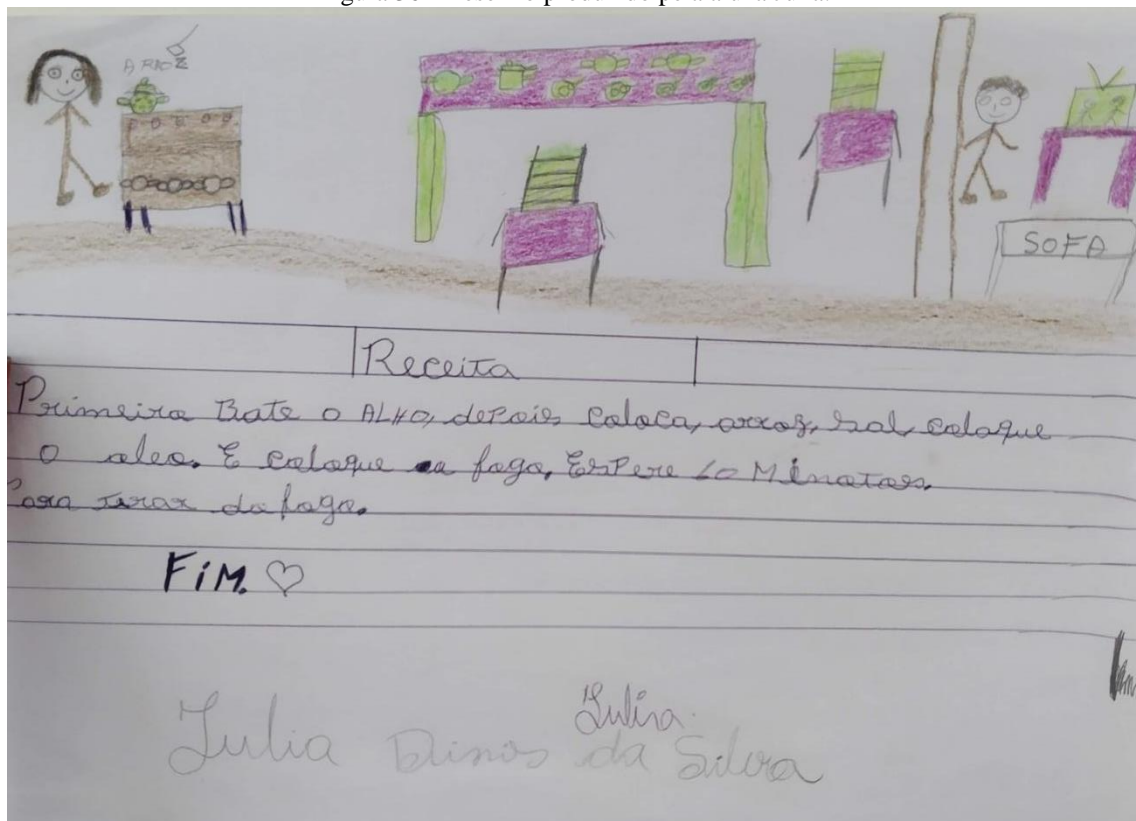 ARROZ
SOFA
Receita
Primeiro Bate o ALHO, depois coloca, arroz, sal, coloque
o oleo. E coloque no fogo, EsPere 20 Minotos.
Para tirar do fogo.
FiM. ♡
Julia
Julia da Silva